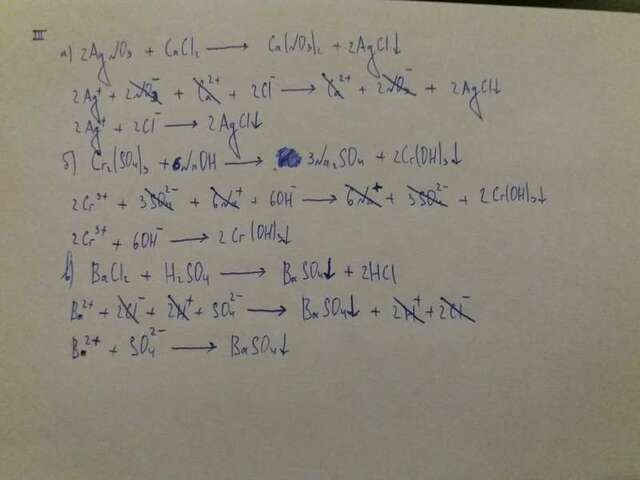 III
а) 2AgNO₃ + CaCl₂ ⟶ Ca(NO₃)₂ + 2AgCl↓
2Ag⁺ + 2NO₃⁻ + Ca²⁺ + 2Cl⁻ ⟶ Ca²⁺ + 2NO₃⁻ + 2AgCl↓
2Ag⁺ + 2Cl⁻ ⟶ 2AgCl↓
б) Cr₂(SO₄)₃ + 6NaOH ⟶ 3Na₂SO₄ + 2Cr(OH)₃↓
2Cr³⁺ + 3SO₄²⁻ + 6Na⁺ + 6OH⁻ ⟶ 6Na⁺ + 3SO₄²⁻ + 2Cr(OH)₃↓
2Cr³⁺ + 6OH⁻ ⟶ 2Cr(OH)₃↓
в) BaCl₂ + H₂SO₄ ⟶ BaSO₄↓ + 2HCl
Ba²⁺ + 2Cl⁻ + 2H⁺ + SO₄²⁻ ⟶ BaSO₄↓ + 2H⁺ + 2Cl⁻
Ba²⁺ + SO₄²⁻ ⟶ BaSO₄↓